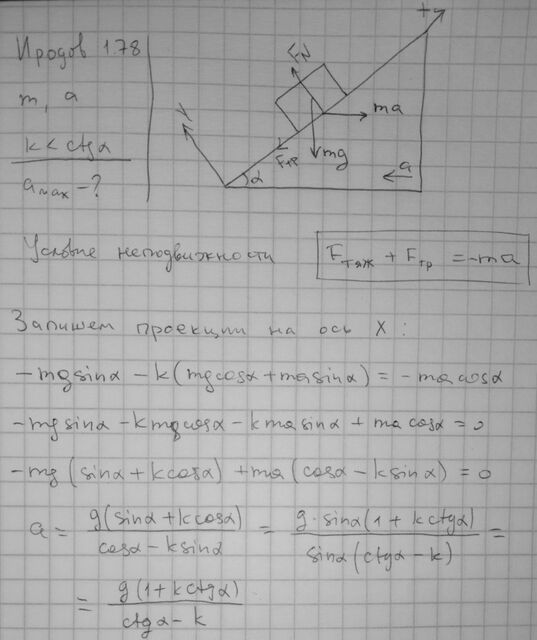 Иродов 1.78
m, a
k < ctgα
a max - ?
y
F N
+
ma
F тр
mg
α
a
Условие неподвижности
F тяж + F тр = -ma
Запишем проекции на ось X:
-mg sinα - k(mg cosα + ma sinα) = - ma cosα
-mg sinα - k mg cosα - k ma sinα + ma cosα = 0
-mg (sinα + k cosα) + ma (cosα - k sinα) = 0
a = g(sinα + k cosα) / cosα - k sinα = g · sinα (1 + k ctgα) / sinα (ctgα - k) =
= g (1 + k ctgα) / ctgα - k